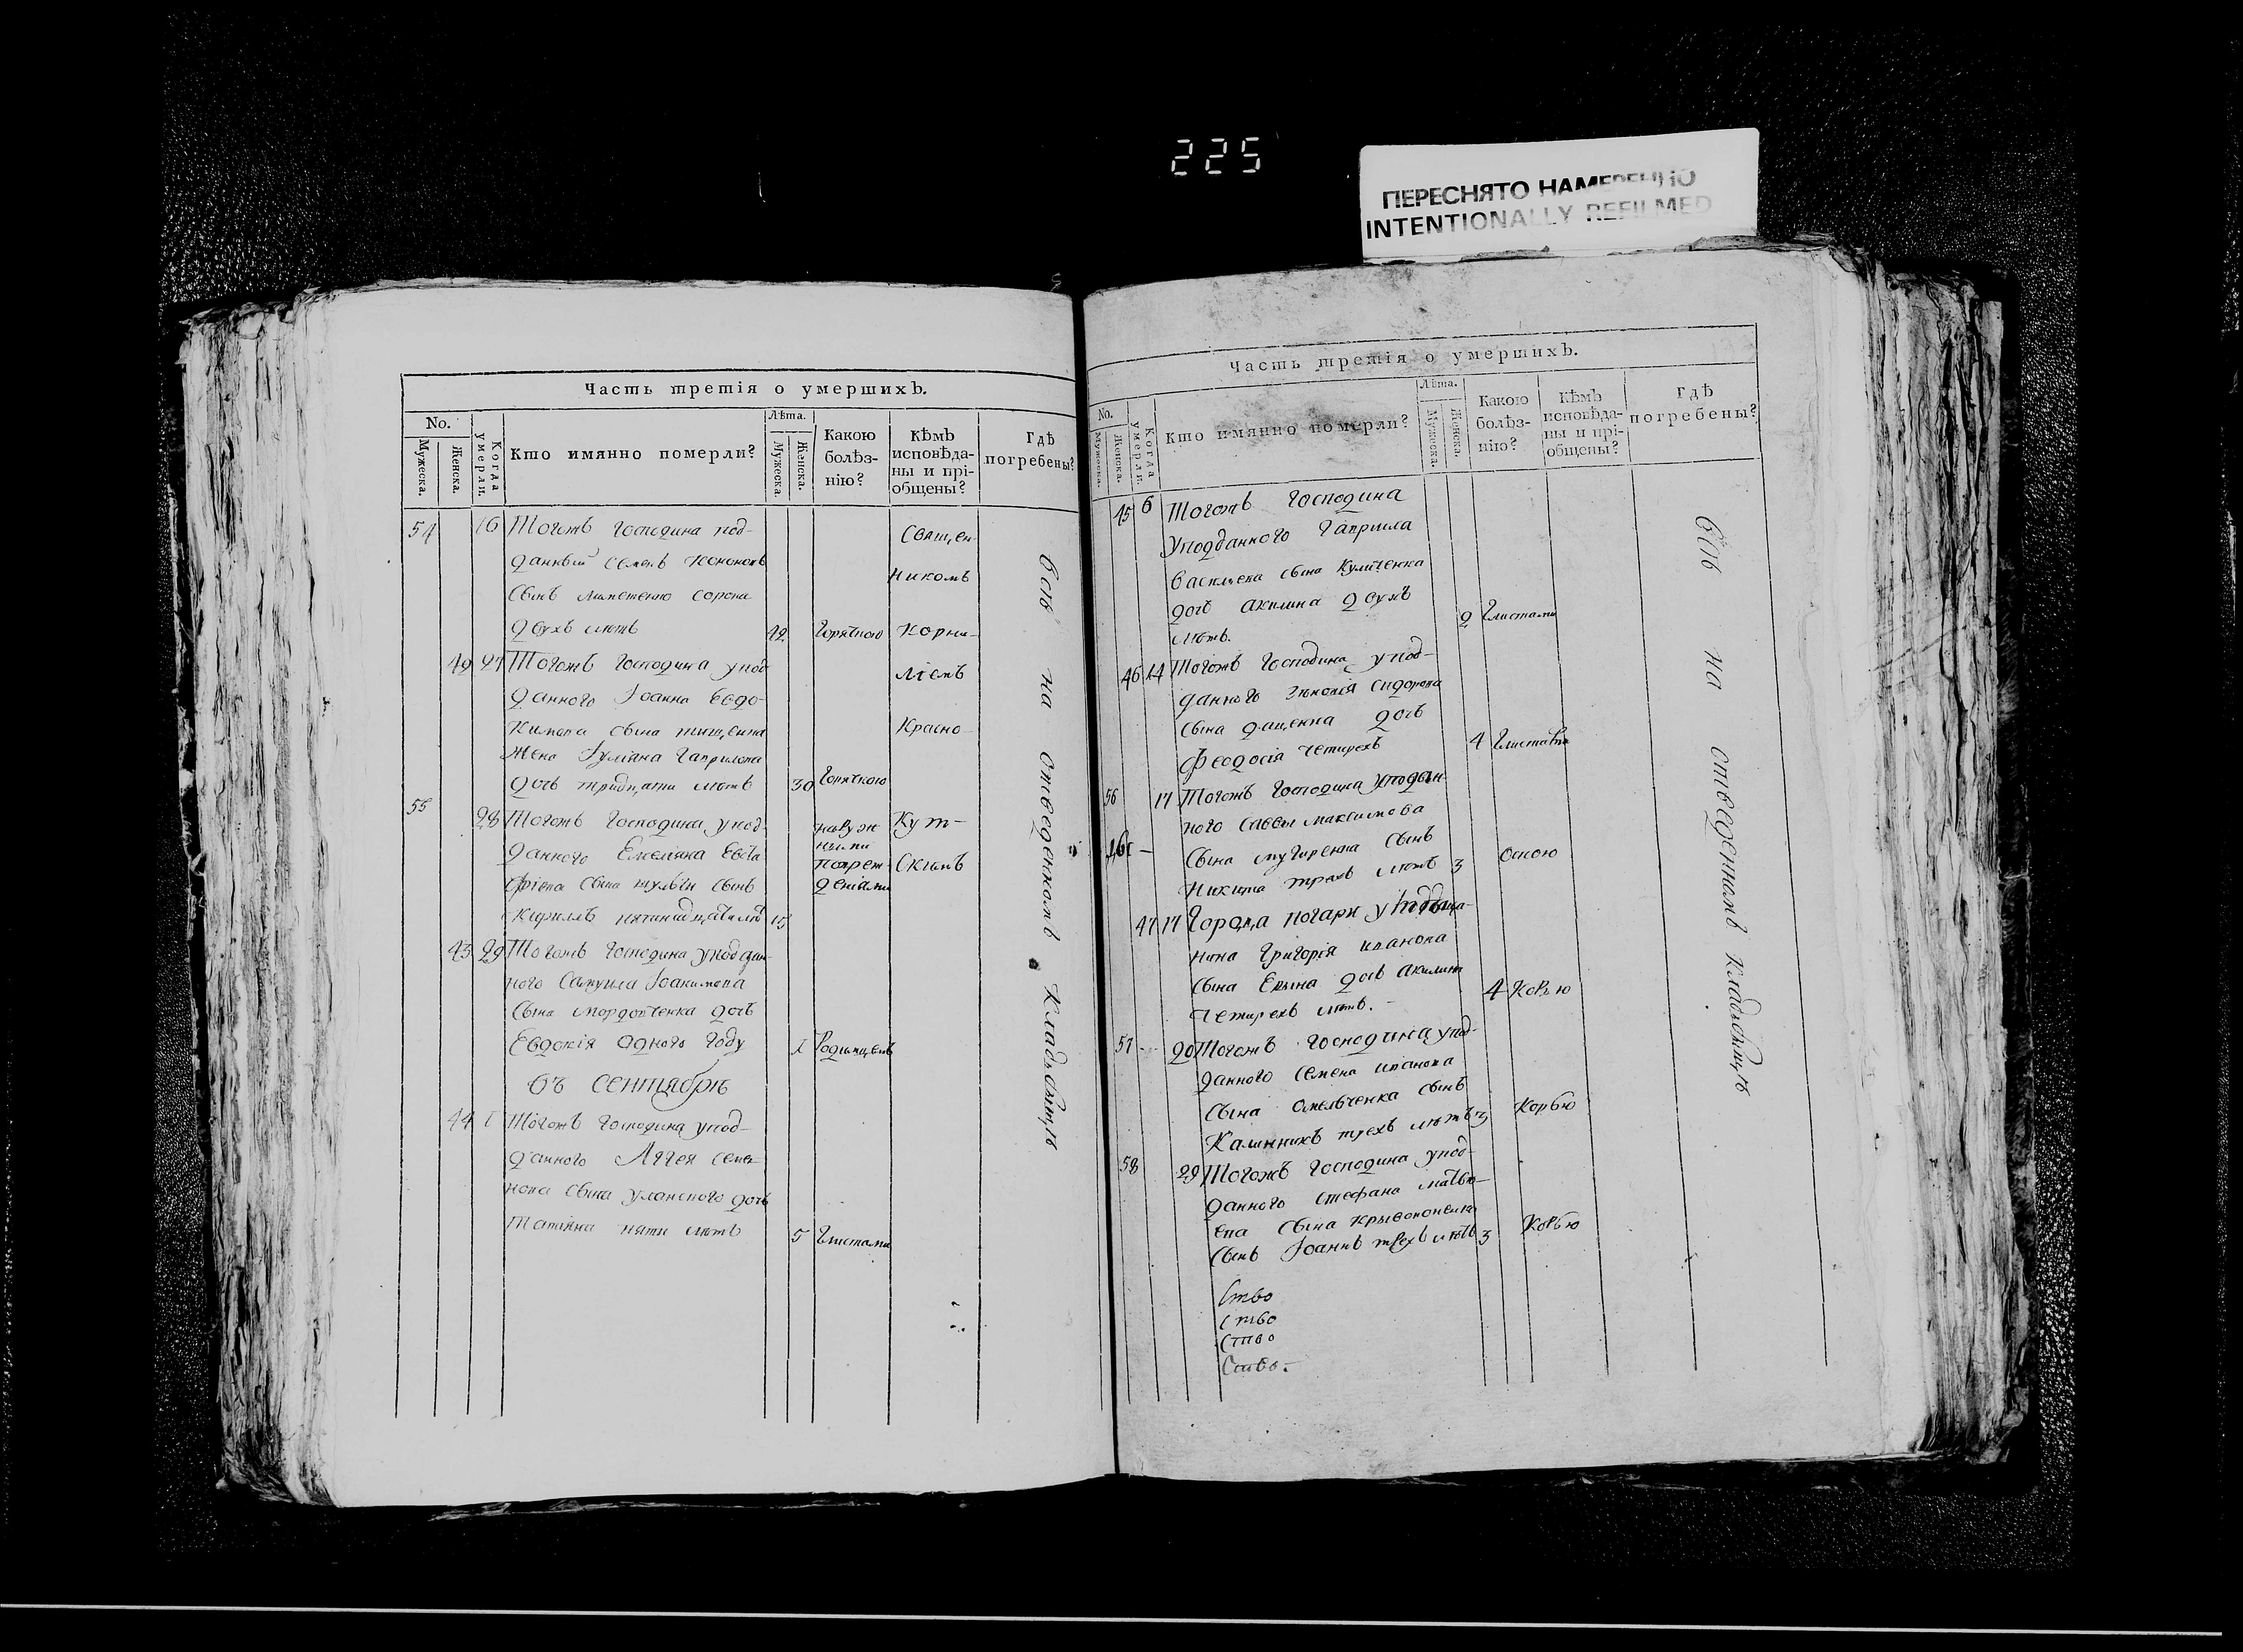 225
ПЕРЕСНЯТО НАМЕРЕННО
INTENTIONALLY REFILMED
Часть третія о умершихъ.
No.
Мужеска.
Женска.
Когда умерли.
Кто имянно померли?
Лѣта.
Мужеска.
Женска.
Какою болѣз-
нію?
Кѣмъ
исповѣда-
ны и прі-
общены?
Гдѣ
погребены?
54 16 Тогожъ господина под-
Свящем
данный Семенъ Кононовъ
никомъ
сынъ сорока
двухъ лѣтъ 42 горячкою Корни-
27 Тогожъ господина упод
ліемъ
данного Іоанна Евдо-
кимова сына
Красно-
жена Іуліана Гаврилова
дочь тридцати лѣтъ 30 горячкою
55 28 Тогожъ господина упод-
Кут-
данного Емеліана Евста
скимъ
фіева сына сынъ
Кирилъ 15
43 29 Тогожъ господина уподдан-
ного Самуила Іоакимова
сына дочь
Евдокія одного году 1 Родимцемъ
въ Сентябрѣ
44 1 Тогожъ господина упод-
данного Аггея Семе-
нова сына уланского дочь
Татіяна пяти лѣтъ 5 Глистами
всѣ на отведенномъ кладбищѣ
Часть третія о умершихъ.
No.
Мужеска.
Женска.
Когда умерли.
Кто имянно померли?
Лѣта.
Мужеска.
Женска.
Какою
болѣз-
нію?
Кѣмъ
исповѣда-
ны и прі-
общены?
Гдѣ
погребены?
45 6 Тогожъ господина
уподданного Гаврила
Васильева сына Куличенка
дочь Акилина двухъ
лѣтъ. 2 Глистами
46 14 Тогожъ господина упод-
данного Сидорова
сына даценка дочь
Феодосія четирехъ 4 Глистами
56 17 Тогожъ господина уподдан
ного Саввы Максимова
сына сынъ
Никита трехъ лѣтъ 3 оспою
47 17 Города Погари
нина Григорія Иванова
сына дочь Акилина
четирехъ лѣтъ. 4 Корью
57 20 Тогожъ господина упод-
данного Семена Иванова
сына Омельченка сынъ
Калинникъ трехъ лѣтъ 3 Корью
58 29 Тогожъ господина упод-
данного Стефана Матвѣ-
ева сына
сынъ Іоаннъ трехъ лѣтъ 3 Корью
ство
ство
ство
ство.
всѣ на отведенномъ кладбищѣ